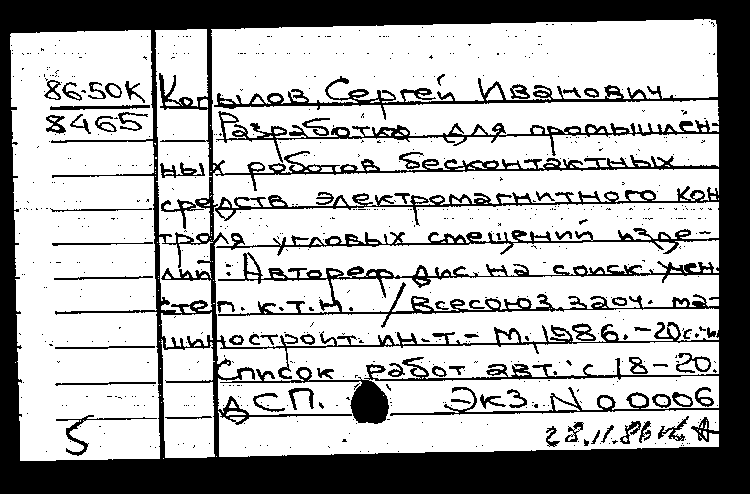 86-50К Копылов, Сергей Иванович.
8465 Разработка для промышлен-
ных роботов бесконтактных
средств электромагнитного кон
троля угловых смещений изде-
лий: Автореф. дис. на соиск. учен.
степ. к.т.н. / Всесоюз. заоч. ма-
шиностроит. ин-т. - М., 1986. - 20с.
Список работ авт.: с 18-20.
ДСП. Экз. N 00006
5 28.11.86